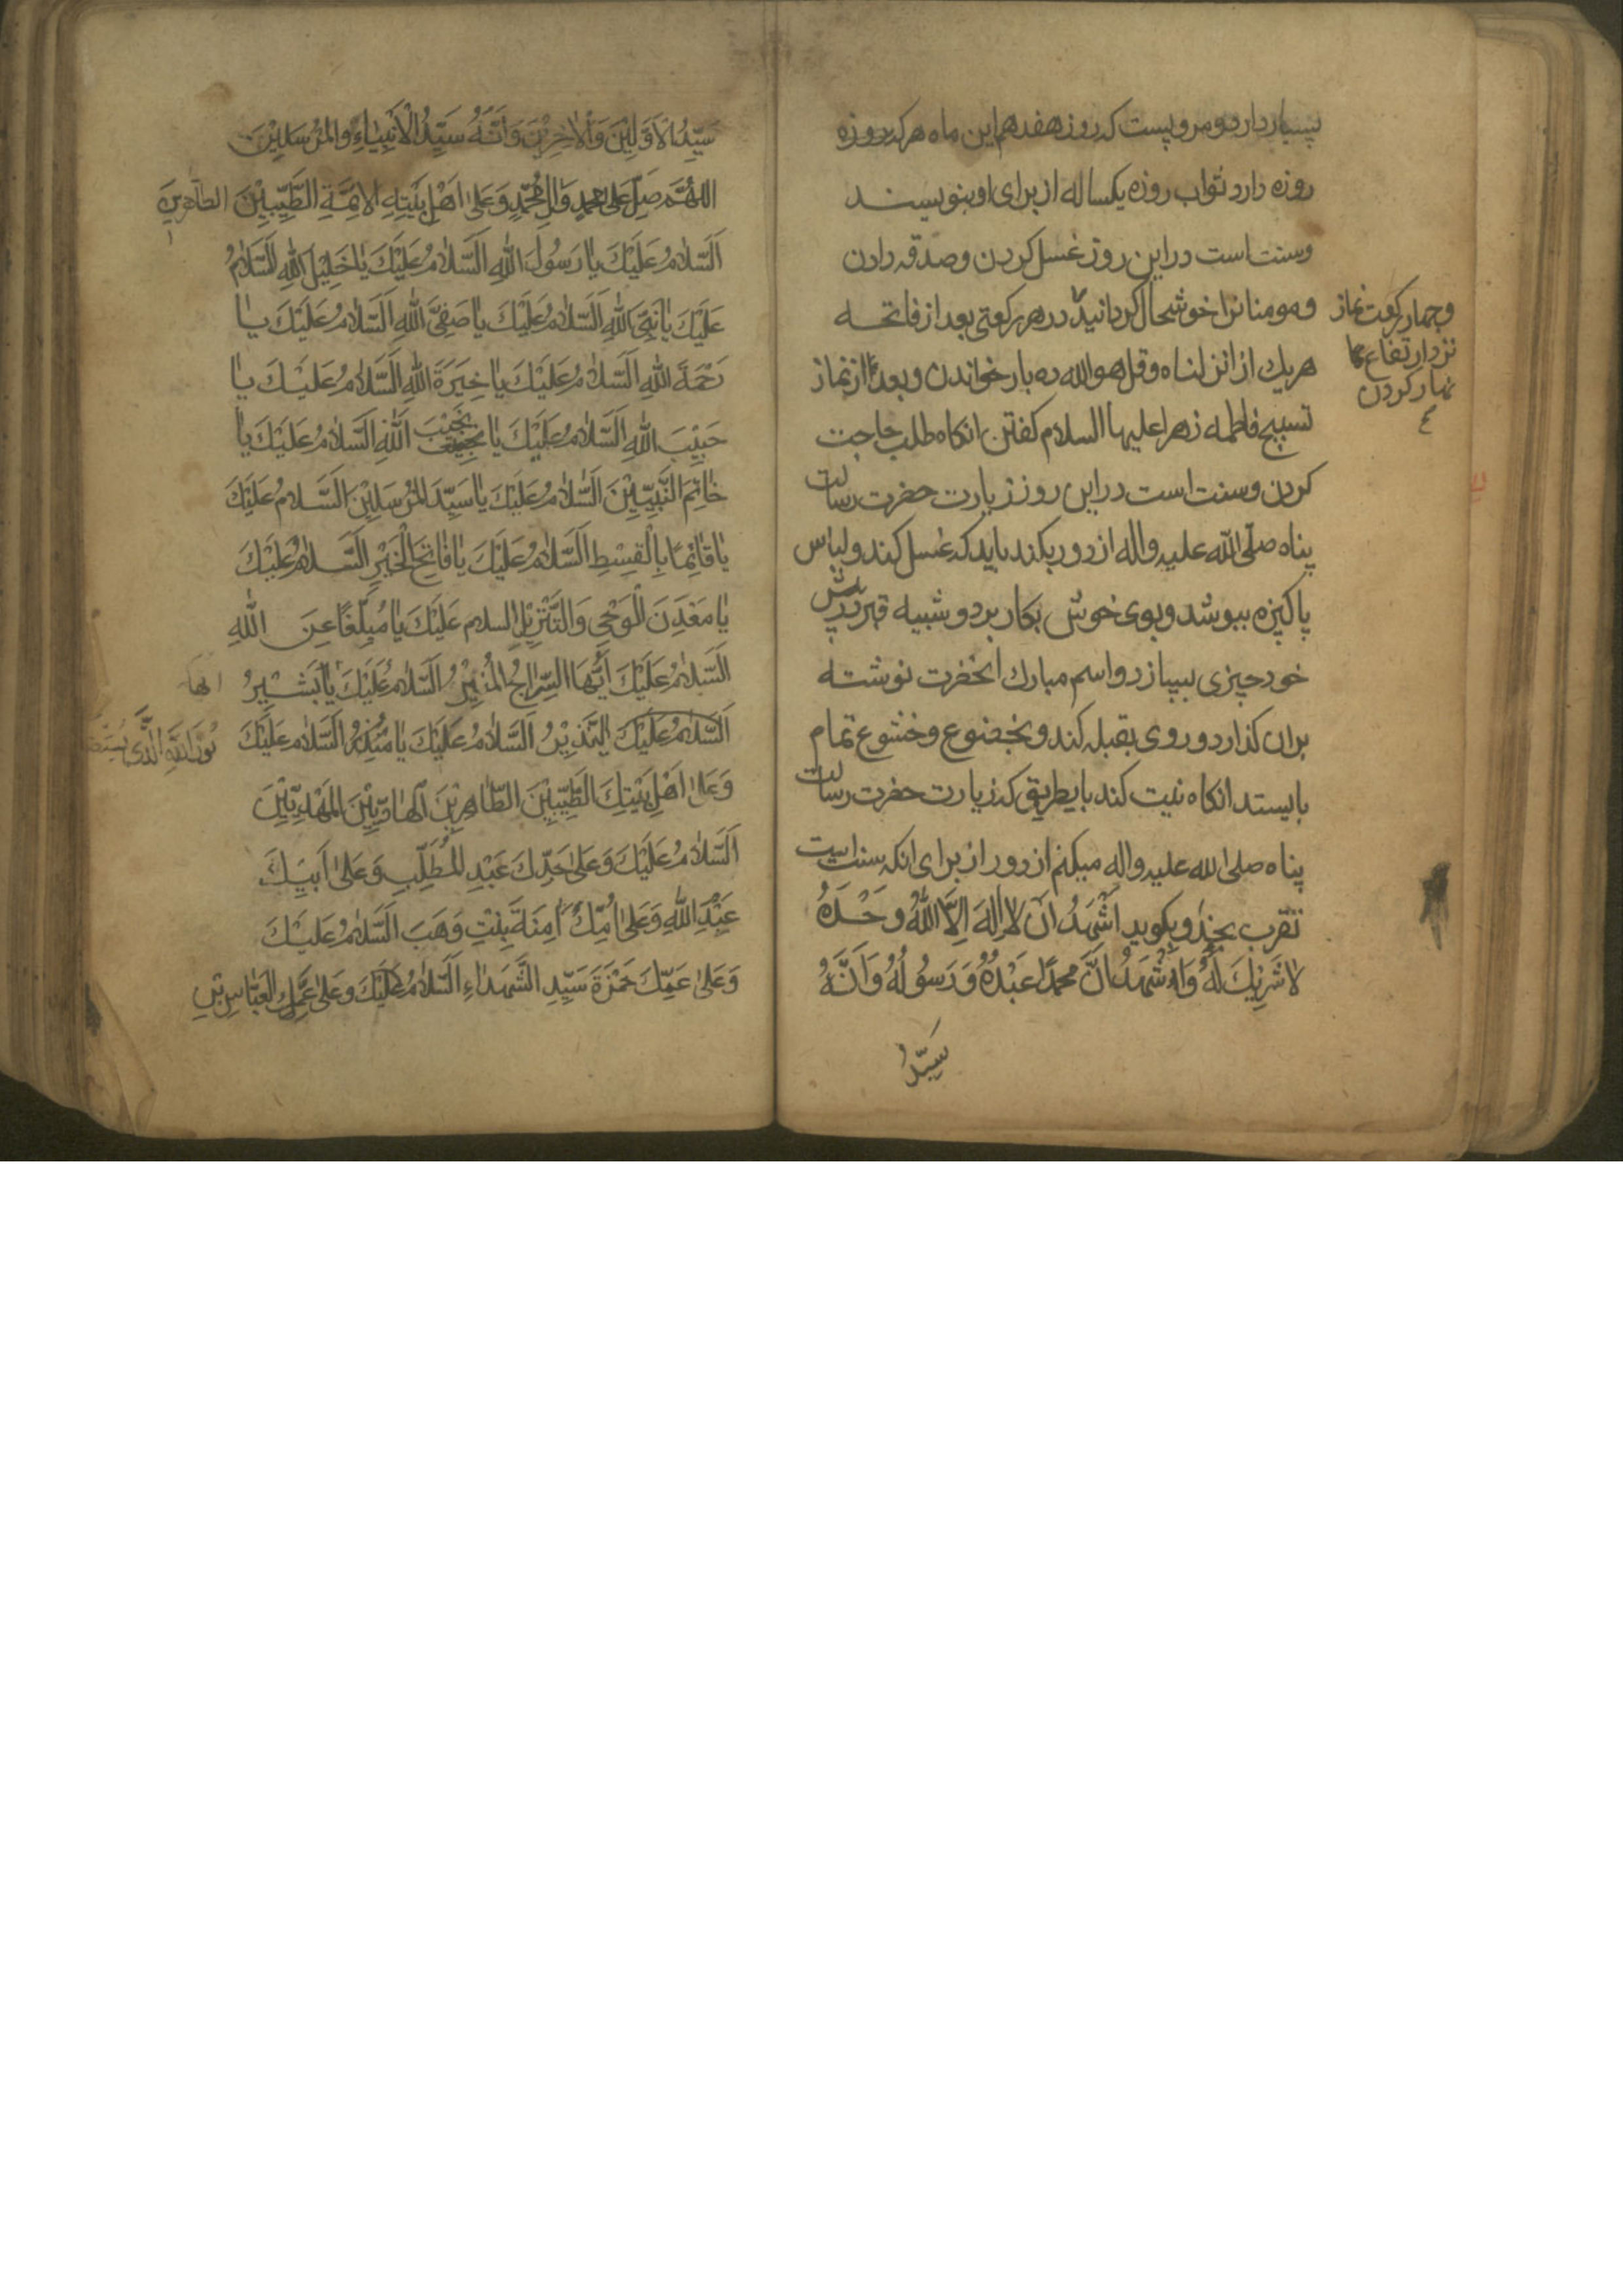 بسیار دارد و مرویست که روز هفدهم این ماه هر که روزه
روزه دارد ثواب روزه یکساله از برای او بنویسند
و سنت است در این روز غسل کردن و صدقه دادن
و مومنانرا خوشحال گردانیدن در هر رکعتی بعد از فاتحه
هر یک از انزلناه و قل هو الله ده بار خواندن و بعد از نماز
تسبیح فاطمه زهرا علیها السلام کفتن انکاه طلب حاجت
کردن و سنت است در این روز زیارت حضرت رسالت
پناه صلّی الله علیه واله از دور بکند باید که غسل کند و لباس
پاکیزه بپوشد و بوی خوش بکار برد و شبیه قبر در پیش
خود چیزی بسازد و اسم مبارک انحضرت نوشته
بران کذارد و روی بقبله کند و بخضوع و خشوع تمام
بایستد انکاه نیت کند باین طریق که زیارت حضرت رسالت
پناه صلی الله علیه واله میکنم از دور از برای انکه سنت است
تقرب بخدا و بکوید اَشْهَدُ اَنْ لا اِلهَ اِلاَّ اللهُ وَحْدَهُ
لا شَرِیْكَ لَهُ وَاَشْهَدُ اَنَّ مُحمّدًا عَبْدُهُ وَرَسُولُهُ وَاَنَّهُ
سَیِّدُ
وچهار رکعت نماز
نزد ارتفاع
نهار کردن
سَیِّدُ الْاَوَّلِیْنَ وَالْاٰخِرِیْنَ وَاَنَّهُ سَیِّدُ الْاَنْبِیٰاءِ وَالْمُرْسَلِیْنَ
اللهُمَّ صَلِّ عَلیٰ مُحمدٍ وَاٰلِ مُحَمَّدٍ وَعَلیٰ اَهْلِ بَیْتِهِ الاَئِمَّةِ الطَّیِّبِیْنَ الطاهرین
اَلسَّلامُ عَلَیْكَ یٰا رَسُولَ اللهِ اَلسَّلامُ عَلَیْكَ یٰا خَلِیْلَ اللهِ اَلسَّلامُ
عَلَیْكَ یٰا نَبِیَّ اللهِ اَلسَّلامُ عَلَیْكَ یٰا صَفِیَّ اللهِ اَلسَّلامُ عَلَیْكَ یٰا
رَحْمَةَ اللهِ اَلسَّلامُ عَلَیْكَ یٰا خِیَرَةَ اللهِ اَلسَّلامُ عَلَیْكَ یٰا
حَبِیْبَ اللهِ اَلسَّلامُ عَلَیْكَ یٰا نَجِیْبَ اللهِ اَلسَّلامُ عَلَیْكَ یٰا
خٰاتِمَ النَّبِیِّیْنَ اَلسَّلامُ عَلَیْكَ یٰا سَیِّدَ الْمُرْسَلِیْنَ اَلسَّلامُ عَلَیْكَ
یٰا قٰائِمًا بِالْقِسْطِ اَلسَّلامُ عَلَیْكَ یٰا فٰاتِحَ الْخَیْرِ اَلسَّلامُ عَلَیْكَ
یٰا مَعْدِنَ الْوَحْیِ وَالتَّنْزِیْلِ السلام عَلَیْكَ یٰا مُبَلِّغًا عَنِ اللهِ
اَلسَّلامُ عَلَیْكَ اَیُّهَا السِّرٰاجُ الْمُنِیْرُ اَلسَّلامُ عَلَیْكَ یٰا بَشِیْرُ
اَلسَّلامُ عَلَیْكَ یٰا نَذِیْرُ اَلسَّلامُ عَلَیْكَ یٰا مُنْذِرُ اَلسَّلامُ عَلَیْكَ
نُورَ اللهِ الَّذی
وَعَلیٰ اَهْلِ بَیْتِكَ الطَّیِّبِیْنَ الطّٰاهِرِیْنَ الْهٰادِیْنَ الْمَهْدِیِّیْنَ
اَلسَّلامُ عَلَیْكَ وَعَلیٰ جَدِّكَ عَبْدِ الْمُطَّلِبِ وَعَلیٰ اَبِیْكَ
عَبْدِ اللهِ وَعَلیٰ اُمِّكَ اٰمِنَةَ بِنْتِ وَهَبَ اَلسَّلامُ عَلَیْكَ
وَعَلیٰ عَمِّكَ حَمْزَةَ سَیِّدِ الشُّهَدٰاءِ اَلسَّلامُ عَلَیْكَ وَعَلیٰ عَمِّكَ الْعَبّٰاسِ بْنِ